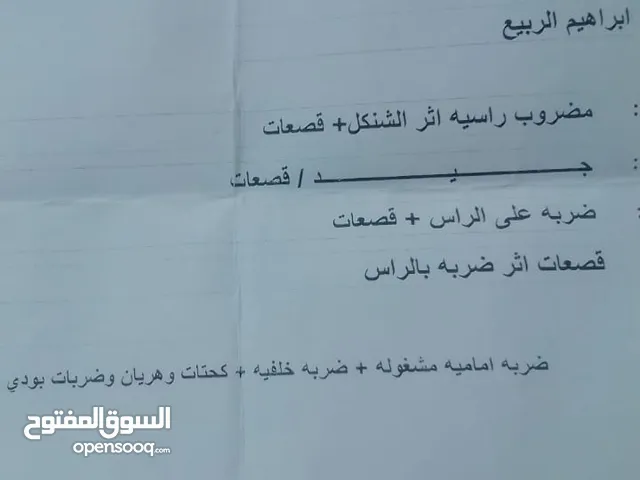 ابراهيم الربيع
: مضروب راسيه اثر الشنكل+ قصعات
: جـــــــيـــــــد / قصعات
: ضربه على الراس + قصعات
قصعات اثر ضربه بالراس
ضربه اماميه مشغوله + ضربه خلفيه + كحتات وهريان وضربات بودي
السوق المفتوح
opensooq.com